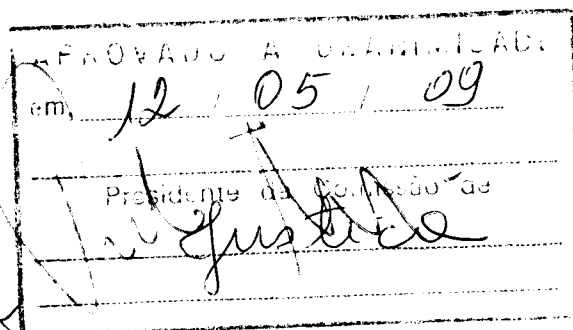 APROVADO A UNANIMIDADE
em, 12 / 05 / 09
Presidente da Comissão de
Justiça